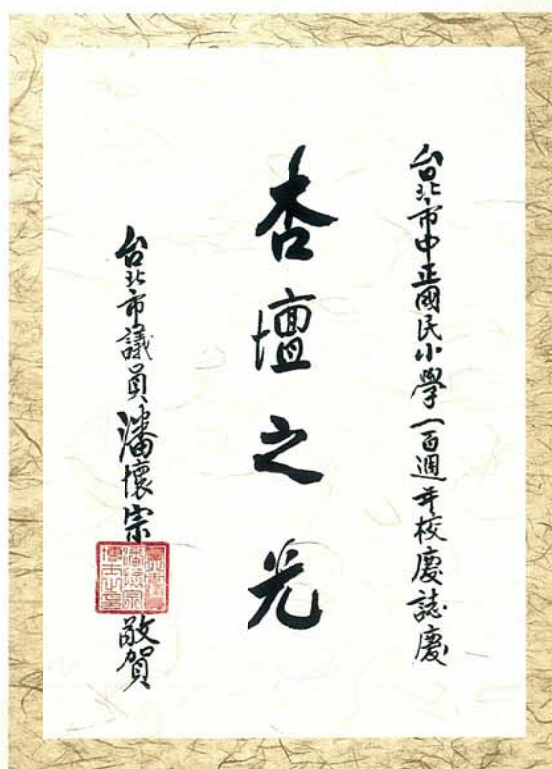 台北市中正國民小學一百週年校慶誌慶
杏壇之光
台北市議員潘懷宗
敬賀